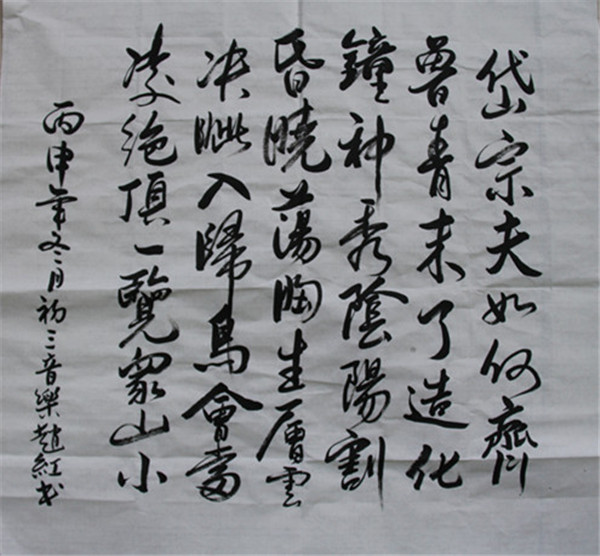 岱宗夫如何齊
魯青未了造化
鐘神秀陰陽割
昏曉蕩胸生層雲
决眦入歸鳥會當
凌絕頂一覽衆山小
丙申年冬月初三音樂趙紅书